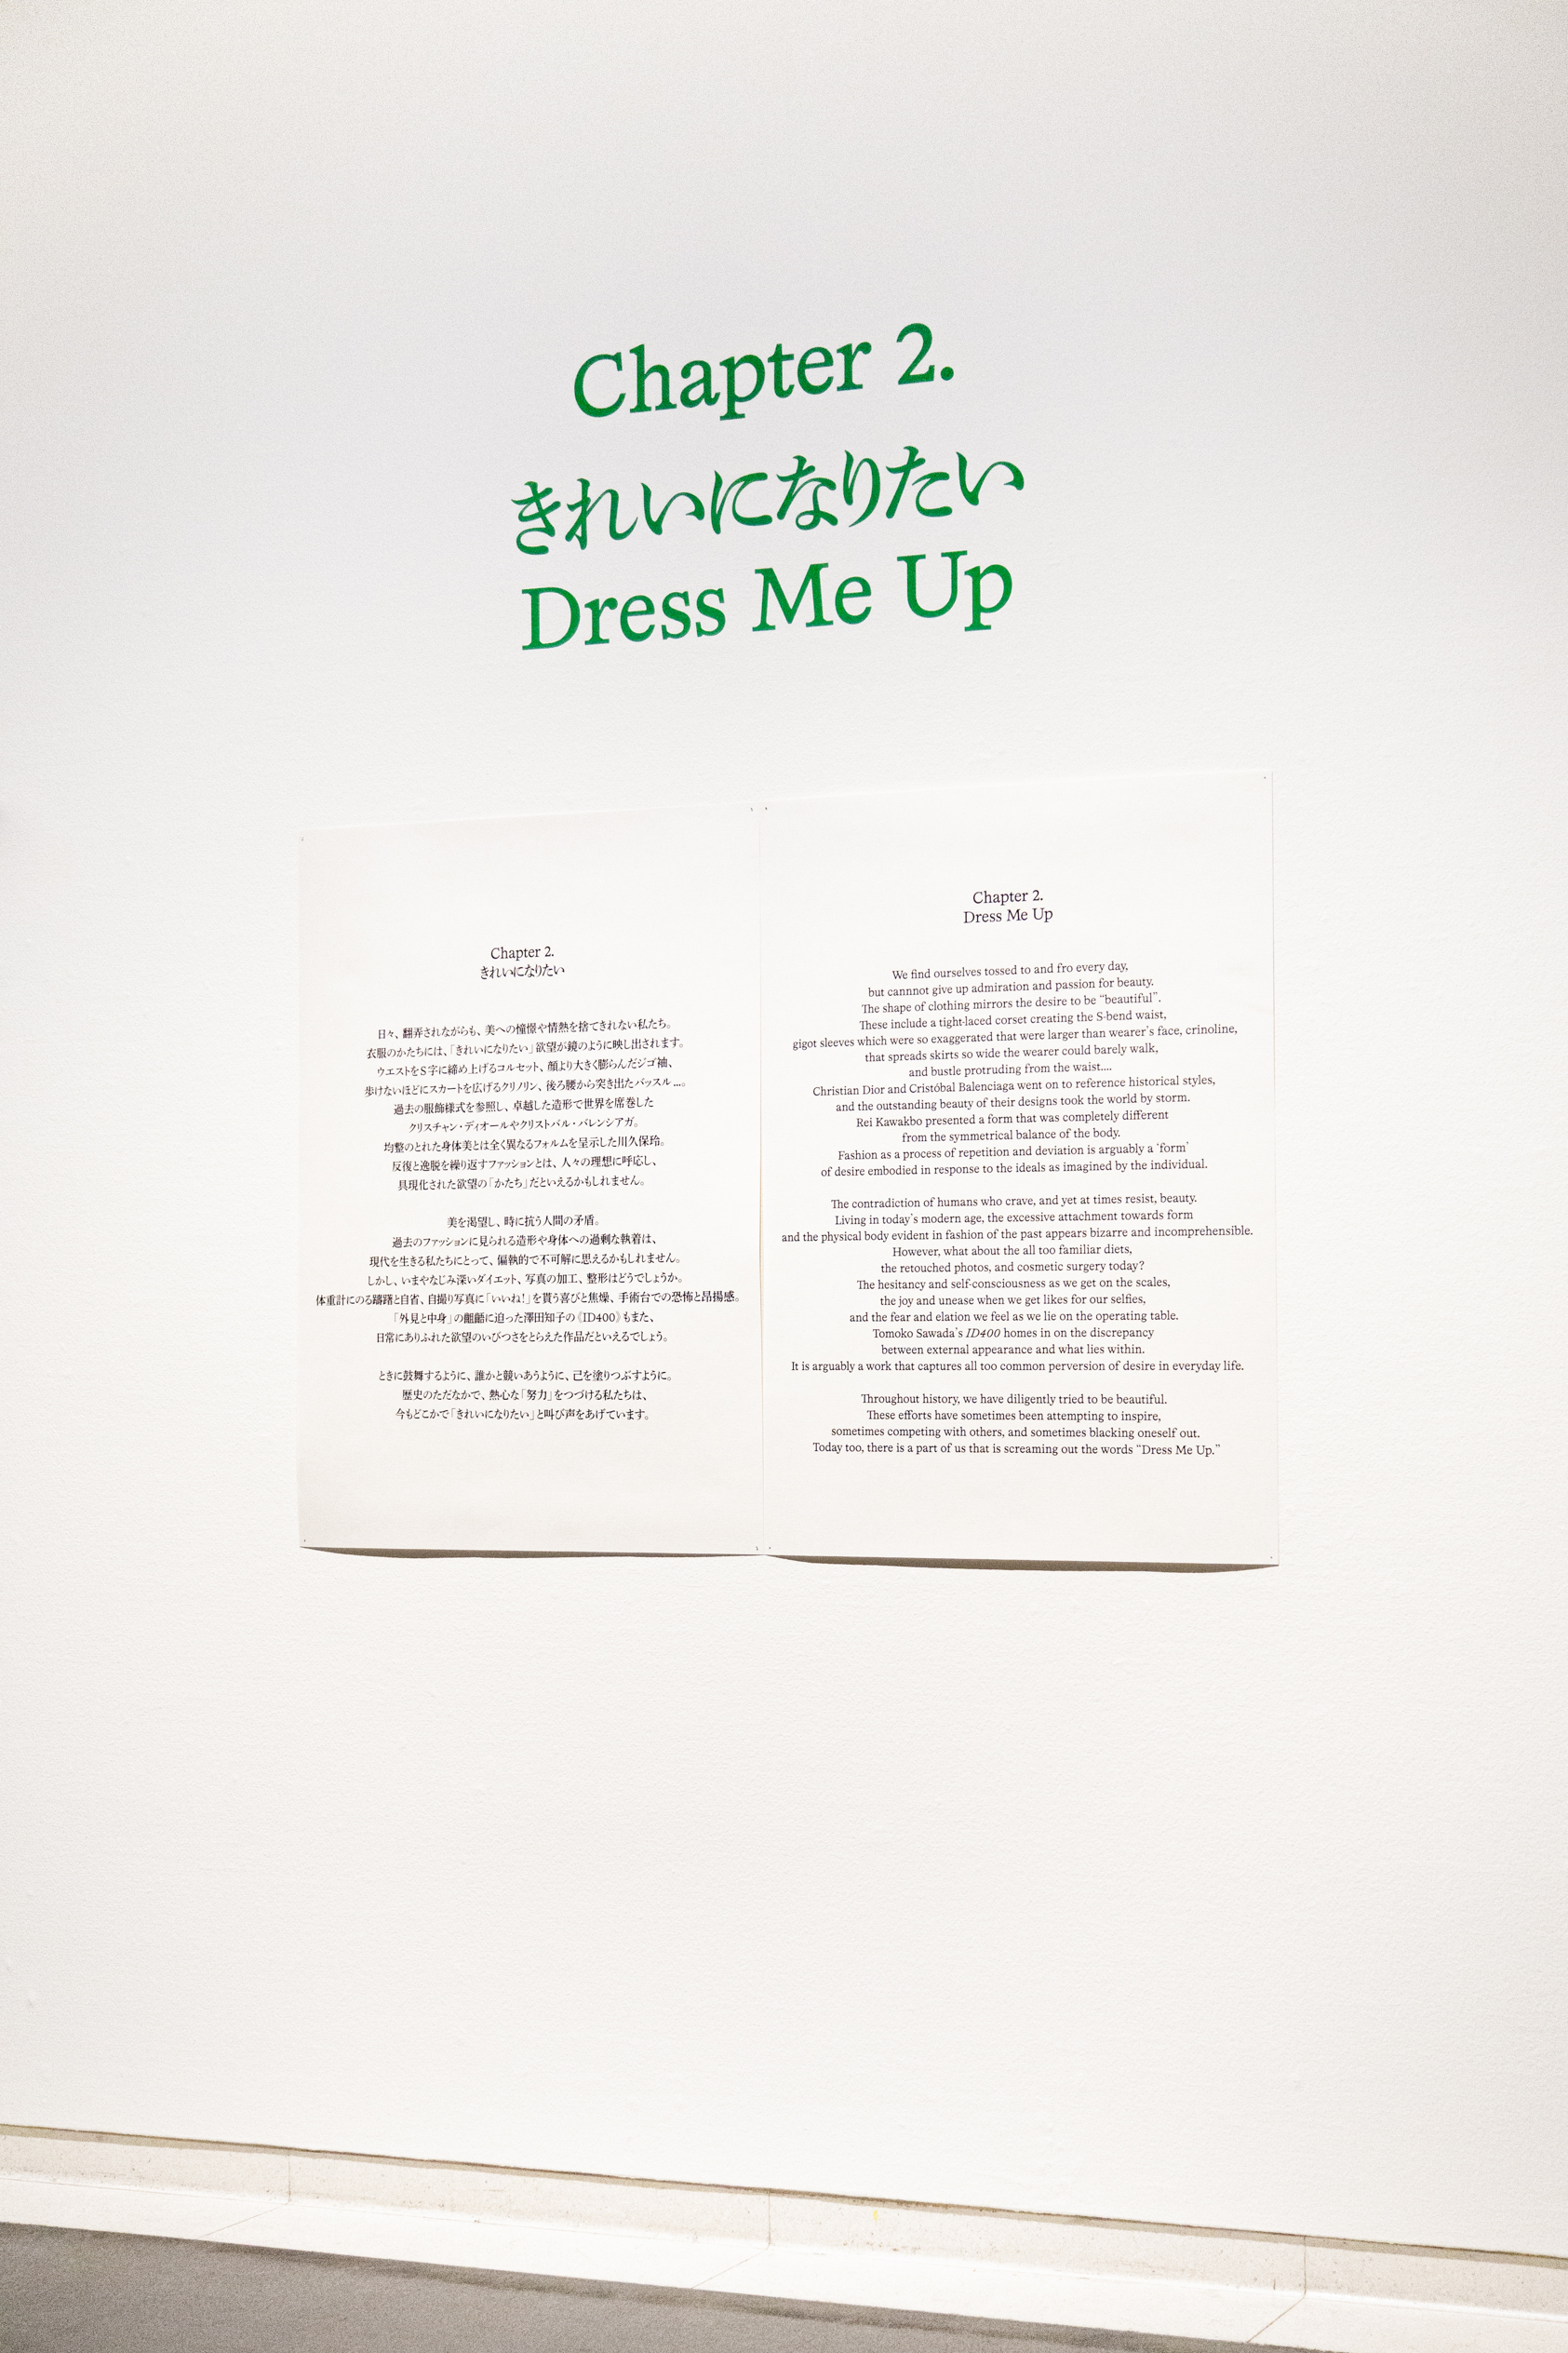 Chapter 2.
きれいになりたい
Dress Me Up
Chapter 2.
きれいになりたい
日々、翻弄されながらも、美への憧憬や情熱を捨てきれない私たち。
衣服のかたちには、「きれいになりたい」欲望が鏡のように映し出されます。
ウエストをS字に締め上げるコルセット、顔より大きく膨らんだジゴ袖、
歩けないほどにスカートを広げるクリノリン、後ろ腰から突き出たバッスル…。
過去の服飾様式を参照し、卓越した造形で世界を席巻した
クリスチャン・ディオールやクリストバル・バレンシアガ。
均整のとれた身体美とは全く異なるフォルムを呈示した川久保玲。
反復と逸脱を繰り返すファッションとは、人々の理想に呼応し、
具現化された欲望の「かたち」だといえるかもしれません。
美を渇望し、時に抗う人間の矛盾。
過去のファッションに見られる造形や身体への過剰な執着は、
現代を生きる私たちにとって、偏執的で不可解に思えるかもしれません。
しかし、いまやなじみ深いダイエット、写真の加工、整形はどうでしょうか。
体重計にのる躊躇と自省、自撮り写真に「いいね!」を貰う喜びと焦燥、手術台での恐怖と昂揚感。
「外見と中身」の齟齬に迫った澤田知子の《ID400》もまた、
日常にありふれた欲望のいびつさをとらえた作品だといえるでしょう。
ときに鼓舞するように、誰かと競いあうように、己を塗りつぶすように。
歴史のただなかで、熱心な「努力」をつづける私たちは、
今もどこかで「きれいになりたい」と叫び声をあげています。
Chapter 2.
Dress Me Up
We find ourselves tossed to and fro every day,
but cannnot give up admiration and passion for beauty.
The shape of clothing mirrors the desire to be “beautiful”.
These include a tight-laced corset creating the S-bend waist,
gigot sleeves which were so exaggerated that were larger than wearer’s face, crinoline,
that spreads skirts so wide the wearer could barely walk,
and bustle protruding from the waist....
Christian Dior and Cristóbal Balenciaga went on to reference historical styles,
and the outstanding beauty of their designs took the world by storm.
Rei Kawakbo presented a form that was completely different
from the symmetrical balance of the body.
Fashion as a process of repetition and deviation is arguably a ‘form’
of desire embodied in response to the ideals as imagined by the individual.
The contradiction of humans who crave, and yet at times resist, beauty.
Living in today’s modern age, the excessive attachment towards form
and the physical body evident in fashion of the past appears bizarre and incomprehensible.
However, what about the all too familiar diets,
the retouched photos, and cosmetic surgery today?
The hesitancy and self-consciousness as we get on the scales,
the joy and unease when we get likes for our selfies,
and the fear and elation we feel as we lie on the operating table.
Tomoko Sawada’s ID400 homes in on the discrepancy
between external appearance and what lies within.
It is arguably a work that captures all too common perversion of desire in everyday life.
Throughout history, we have diligently tried to be beautiful.
These efforts have sometimes been attempting to inspire,
sometimes competing with others, and sometimes blacking oneself out.
Today too, there is a part of us that is screaming out the words “Dress Me Up.”